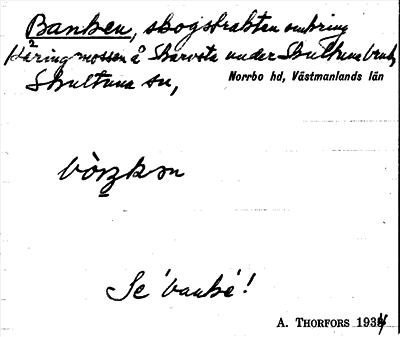 Banken, skogstrakten omkring
Häringmossen å Skarvsta under Skultuna bruk,
Skultuna sn,
Norrbo hd, Västmanlands län
Se 'banké'!
A. THORFORS 1934